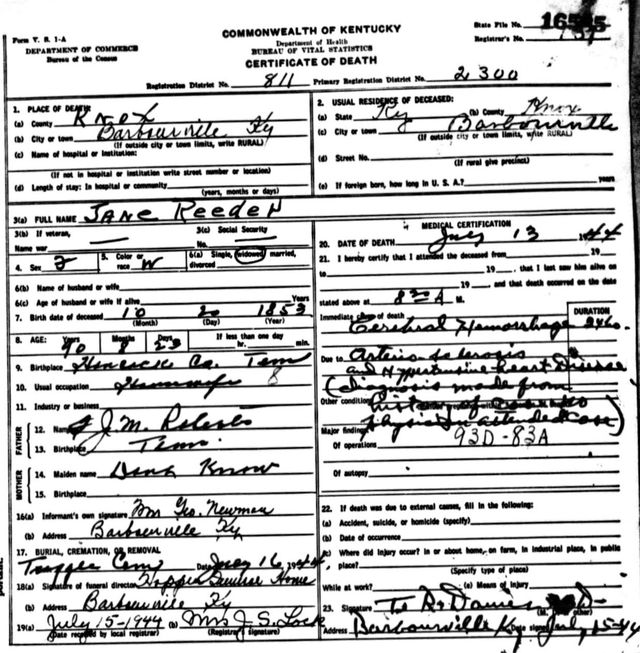 COMMONWEALTH OF KENTUCKY
Form V. S. 1-A
DEPARTMENT OF COMMERCE
Bureau of the Census
Department of Health
BUREAU OF VITAL STATISTICS
CERTIFICATE OF DEATH
State File No.
Registrar's No.
Registration District No. 811 Primary Registration District No. 2300
1. PLACE OF DEATH:
(a) County Knox
(b) City or town Barbourville Ky
(If outside city or town limits, write RURAL)
(c) Name of hospital or institution:
(If not in hospital or institution write street number or location)
(d) Length of stay: In hospital or community
(years, months or days)
2. USUAL RESIDENCE OF DECEASED:
(a) State Ky (b) County Knox
(c) City or town Barbourville
(If outside city or town limits, write RURAL)
(d) Street No.
(If rural give precinct)
(e) If foreign born, how long in U. S. A.? years
3(a) FULL NAME JANE Reeder
3(b) If veteran,
Name war
3(c) Social Security
No.
4. Sex F 5. Color or race W 6(a) Single, widowed married, divorced
6(b) Name of husband or wife
6(c) Age of husband or wife if alive Years
7. Birth date of deceased 10 20 1853
(Month) (Day) (Year)
8. AGE: Years Months Days If less than one day
90 8 23 hr. min.
9. Birthplace Hancock Co. Tenn
10. Usual occupation Housewife 8
11. Industry or business
FATHER
12. Name J.M. Roberts
13. Birthplace Tenn.
MOTHER
14. Maiden name Dont Know
15. Birthplace
16(a) Informant's own signature Mrs Geo. Newman
(b) Address Barbourville Ky
17. BURIAL, CREMATION, OR REMOVAL
Cem Date July 16, 1944
18(a) Signature of funeral director Hopper Funeral Home
(b) Address Barbourville Ky
19(a) July 15-1944 (b) Mrs J. S. Lock
(Date received by local registrar) (Registrar's signature)
MEDICAL CERTIFICATION
20. DATE OF DEATH July 13 1944
21. I hereby certify that I attended the deceased from 19
to 19 , that I last saw him alive on
19 , and that death occurred on the date
stated above at 8 30 A M.
Immediate cause of death DURATION
Cerebral Hemorrhage
Due to Arteriosclerosis
and Hypertensive heart Disease
(diagnosis made from
Other conditions history of
physician attended case)
Major findings:
Of operations 93D-83A
Of autopsy
22. If death was due to external causes, fill in the following:
(a) Accident, suicide, or homicide (specify)
(b) Date of occurrence
(c) Where did injury occur? in or about home, on farm, in industrial place, in public
place?
(Specify type of place)
While at work? (e) Means of injury
23. Signature
Address Barbourville Ky Date signed July, 15-44